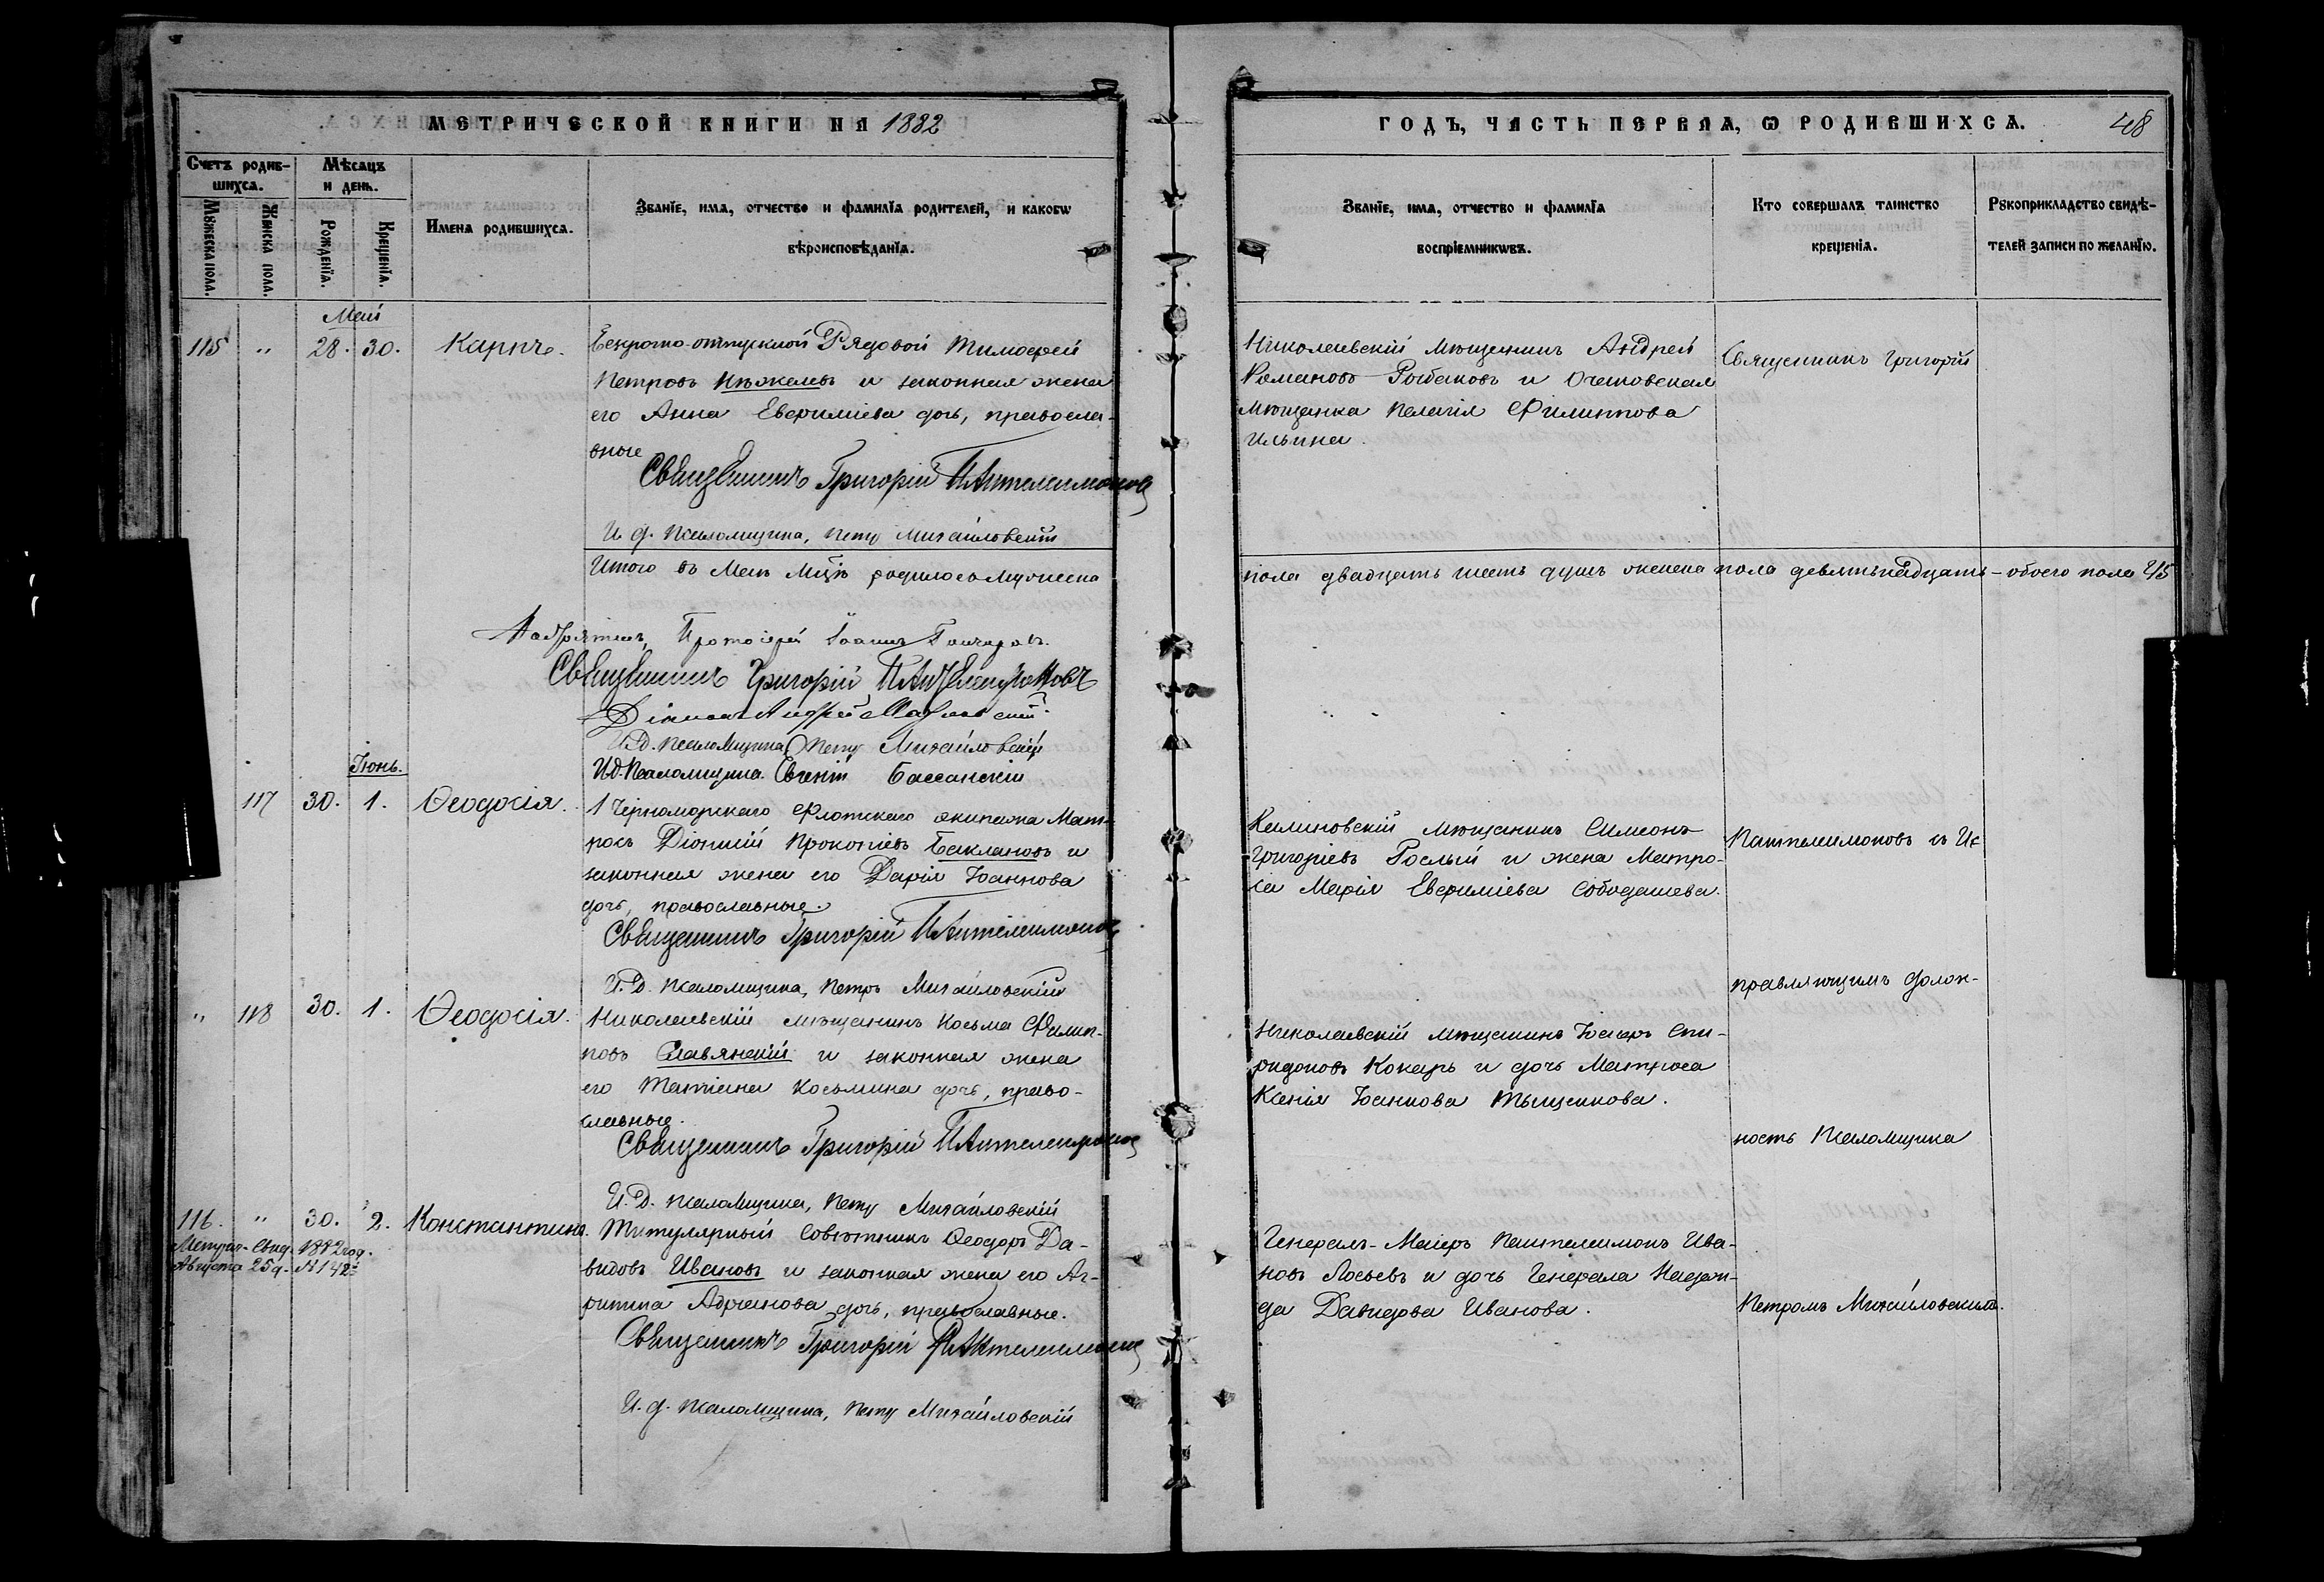 МЕТРИЧЕСКОЙ КНИГИ НА 1882
ГОДЪ, ЧАСТЬ ПЕРВАЯ, Ѡ РОДИВШИХСѦ.
48
Счетъ родив-
шихсѧ.
Мѣсѧцъ
и день.
Мꙋжеска пола.
Женска пола.
Рожденїѧ.
Крещенїѧ.
Имена родившихсѧ.
Званїе, имѧ, отчество и фамилїѧ родителей, и какогѡ
вѣроисповѣданїѧ.
Званїе, имѧ, отчество и фамилїѧ
воспрїемникѡвъ.
Кто совершалъ таинство
крещенїѧ.
Рꙋкоприкладство свидѣ-
телей записи по желанїю.
Май
115 " 28. 30. Карпъ.
Безсрочно-отпускной Рядовой Тимофей
Петровъ и законная жена
его Анна Евфиміева дочь, правосла-
вные
Священникъ Григорій Пантелеимоновъ
И. д. Псаломщика, Петръ Михайловскій
Николаевскій мѣщанинъ Андрей
Романовъ Рыбаковъ и Очаковская
мѣщанка Пелагія Филиппова
Ильина.
Священникъ Григорій
Итого въ Маѣ мцѣ родилось мужеска
пола двадцать шесть душъ женска пола девятьнадцать – обоего пола 45
Протоіерей Іоаннъ Гончаровъ.
Священникъ Григорій Пантелеимоновъ
Діаконъ Андрей
И.д. Псаломщика Петръ Михайловскій
И.д. Псаломщика Евгеній Бассанскій
Іюнь.
117 30. 1. Ѳеодосія.
1 Черноморскаго Флотскаго экипажа Мат-
росъ Діонисій Прокопіевъ Баклановъ и
законная жена его Дарія Іоаннова
дочь, православные.
Священникъ Григорій Пантелеимоновъ
И. Д. Псаломщика, Петръ Михайловскій
Калиновскій мѣщанинъ Симеонъ
Григоріевъ Рослый и жена Матро-
са Марія Евфиміева
Пантелеимоновъ съ Ис
правляющимъ долж-
" 118 30. 1. Ѳеодосія.
Николаевскій мѣщанинъ Косьма Филип-
повъ Славянскій и законная жена
его Татіана Косьмина дочь, право-
славные.
Священникъ Григорій Пантелеимоновъ
И. Д. Псаломщика, Петръ Михайловскій
Николаевскій мѣщанинъ Спи-
ридоновъ Кокарь и дочь Матроса
Ксенія Іоаннова Тыщенкова.
ность Псаломщика
116. " 30. 2. Константинъ.
Метрич. Свид. 1882 год.
Августа 25 д. № 142
Титулярный Совѣтникъ Ѳеодоръ Да-
видовъ Ивановъ и законная жена его Аг-
рипина Адріанова дочь, православные.
Священникъ Григорій Пантелеимоновъ
И. д. Псаломщика, Петръ Михайловскій
Генералъ-Маіоръ Пантелеимонъ Ива-
новъ Лосьевъ и дочь Генерала Надеж-
да Давидова Иванова.
Петромъ Михайловскимъ.